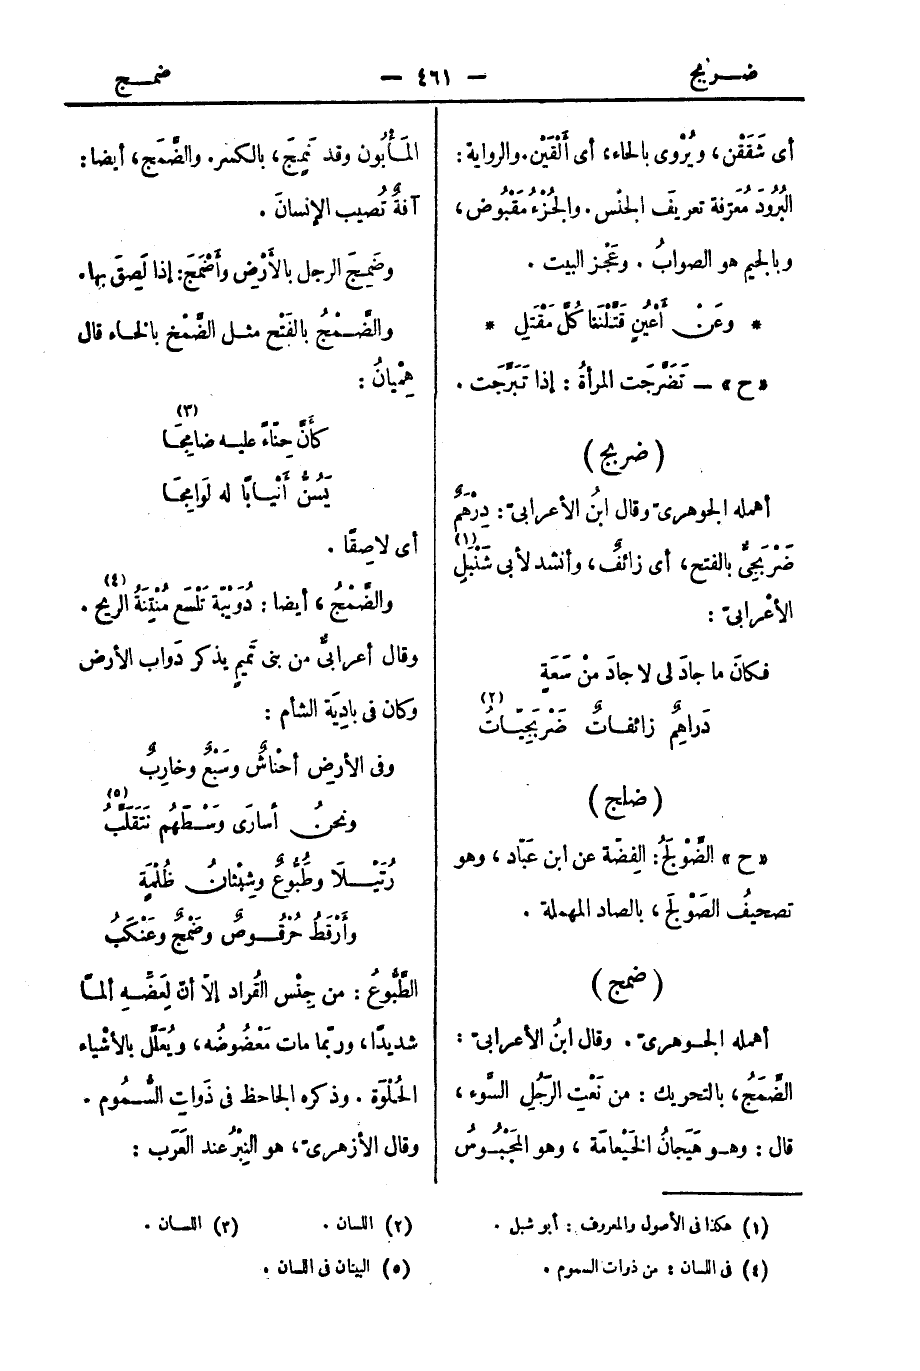 ضربج
— ٤٦١ —
ضمج
أى شَقَقْن، ويُرْوى بالحاء، أى أَلْقَيْن. والرواية:
البُرُودَ مُعَرّفة تعريفَ الجنْس. والجُزْءُ مَقْبُوض،
وبالجيم هو الصوابُ. وعَجْز البيت.
* وعَنْ أَعْيُنٍ قَتَّلْنَنَا كُلَّ مَقْتَلِ *
«ح» — تَضَرَّجَت المرأةُ: إذا تَبَرَّجَت.
(ضربج)
أهمله الجوهرىّ وقال ابنُ الأعرابىّ: دِرْهَمٌ
ضَرْبَجِىٌّ بالفتح، أى زائفٌ، وأنشد لأبى شَنْبَلٍ (١)
الأعْرابىّ:
فكانَ ما جادَ لى لا جادَ منْ سَعَةٍ
دَراهِمٌ زائفاتٌ ضَرْبَجِيّاتُ (٢)
(ضلج)
«ح» الضَّوْلَجُ: الفِضّة عن ابن عبّاد، وهو
تصحيفُ الصَوْلَج، بالصاد المهملة.
(ضمج)
أهمله الجوهرىّ. وقال ابنُ الأعرابىّ:
الضَّمَجُ، بالتحريك: من نَعْتِ الرَّجُلِ السَّوْء،
قال: وهو هَيَجانُ الخَيْعامَة، وهو المَجْبُوسُ
المَأْبُون وقد ضَمِجَ، بالكسر. والضَّمَج، أيضا:
آفةٌ تُصيب الإنسانَ.
وضَمِجَ الرجل بالأَرْض وأَضْمَجَ: إذا لَصِقَ بها.
والضَّمْجُ بالفَتْح مثل الضَّمْخ بالخاء قال
هِمْيانُ:
كأَنَّ حِنّاءً عليه ضامِجَا (٣)
يَسُنُّ أَنْيابًا له لَوَامِجَا
أى لاصِقًا.
والضَّمْجُ، أيضا: دُوَيْبّة تَلْسَع مُنْتِنَةُ الريح (٤).
وقال أعرابىٌّ من بنى تَميمٍ يذكر دَواب الأرض
وكان فى بادِيَة الشأم:
وفى الأرضِ أحْناشٌ وسَبْعٌ وخارِبٌ
ونحنُ أسارَى وَسْطَهُم نَتَقَلَّبُ (٥)
رُتَيْلَا وطَبُّوعٌ وشِبْثانُ ظُلْمَةٍ
وأَرْقَطُ حُرْقُوصٌ وضَمْجٌ وعَنْكَبُ
الطَّبُّوعُ: من جِنْس القُراد إلّا أنّ لِعَضّه ألمًا
شديدًا، وربّما مات مَعْضُوضُه، ويُعَلَّل بالأشْياء
الحُلْوَة. وذكره الجاحظ فى ذَواتِ السُّمُوم.
وقال الأزهرىّ، هو النِبْرُ عند العَرَب:
(١) هكذا فى الأصول والمعروف: أبو شبل.
(٢) اللسان.
(٣) اللسان.
(٤) فى اللسان: من ذوات السموم.
(٥) البيتان فى اللسان.